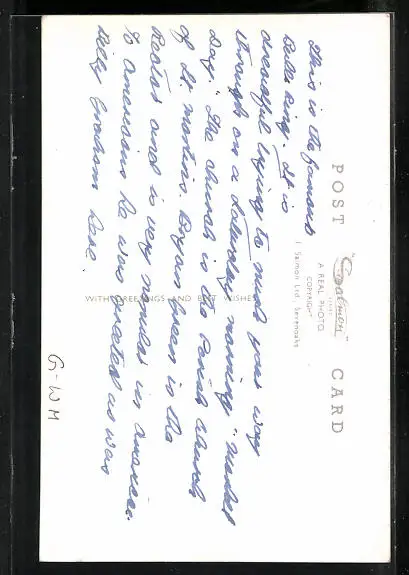 POST CARD
"Salmon" SERIES
A REAL PHOTO
COPYRIGHT
J. Salmon Ltd., Sevenoaks
WITH GREETINGS AND BEST WISHES
This is the famous
Bull Ring. It is
dreadful trying to push your way
through on a Saturday morning "Market
Day." The church is the Parish Church
of St. Martin's. Bryan Green is the
Rector and is very popular in America.
To Americans he was greeted as was
Billy Graham here.
G-WM